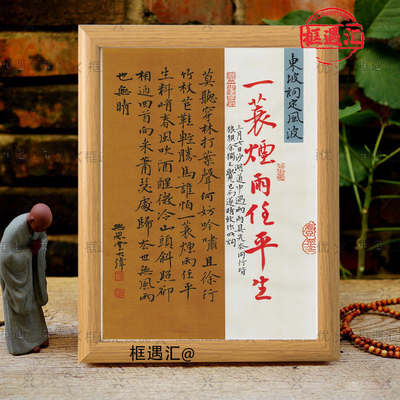 框遇汇
東坡詞定風波
一蓑煙雨任平生
三月七日沙湖道中遇雨雨具先去同行皆
狼狽余獨不覺已而遂晴故作此詞
莫聽穿林打葉聲何妨吟嘯且徐行
竹杖芒鞋輕勝馬誰怕一蓑煙雨任平
生料峭春風吹酒醒微冷山頭斜照卻
相迎回首向來蕭瑟處歸去也無風雨
也無晴
框遇汇@